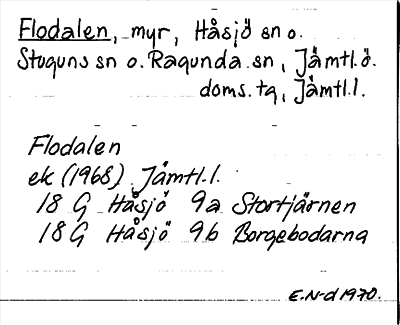 Flodalen, myr, Håsjö sn o.
Stuguns sn o. Ragunda sn, Jämtl. ö.
doms. tg, Jämtl. l.
Flodalen
ek (1968) Jämtl. l.
18 G Håsjö 9a Stortjärnen
18 G Håsjö 9b Borgebodarna
E.N-d 1970.